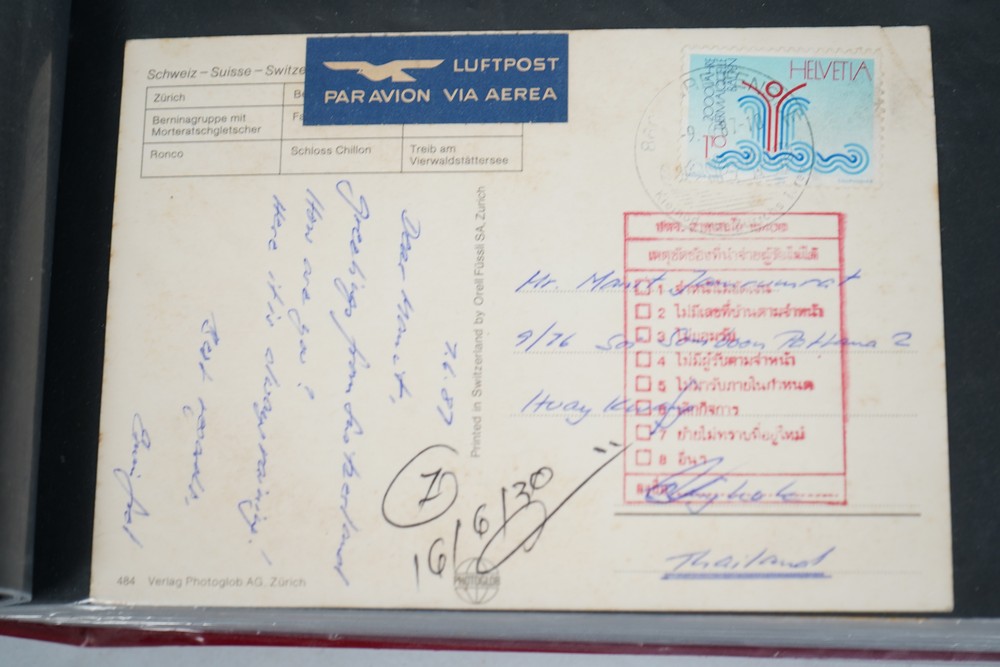 Schweiz – Suisse – Switze
Zürich
Be
Berninagruppe mit
Morteratschgletscher
Fa
Ronco
Schloss Chillon
Treib am
Vierwaldstättersee
LUFTPOST
PAR AVION VIA AEREA
HELVETIA
2000 JAHRE
THERMALQUELLEN
BADEN
110
7.6.87
Dear Manit,
Greetings from Switzerland
How are you?
Here it is always raining!
Best regards,
Printed in Switzerland by Orell Füssli SA, Zürich
Mr. Manit
9/76 Soi Somboon Pattana 2
Huay Kwang
Thailand
เหตุขัดข้องที่นำจ่ายผู้รับไม่ได้
1
2 ไม่มีเลขที่บ้านตามจ่าหน้า
3 ไม่ยอมรับ
4 ไม่มีผู้รับตามจ่าหน้า
5 ไม่มารับภายในกำหนด
6 เลิกกิจการ
7 ย้ายไม่ทราบที่อยู่ใหม่
8 อื่นๆ
1
16/6/30
PHOTOGLOB
484 Verlag Photoglob AG, Zürich